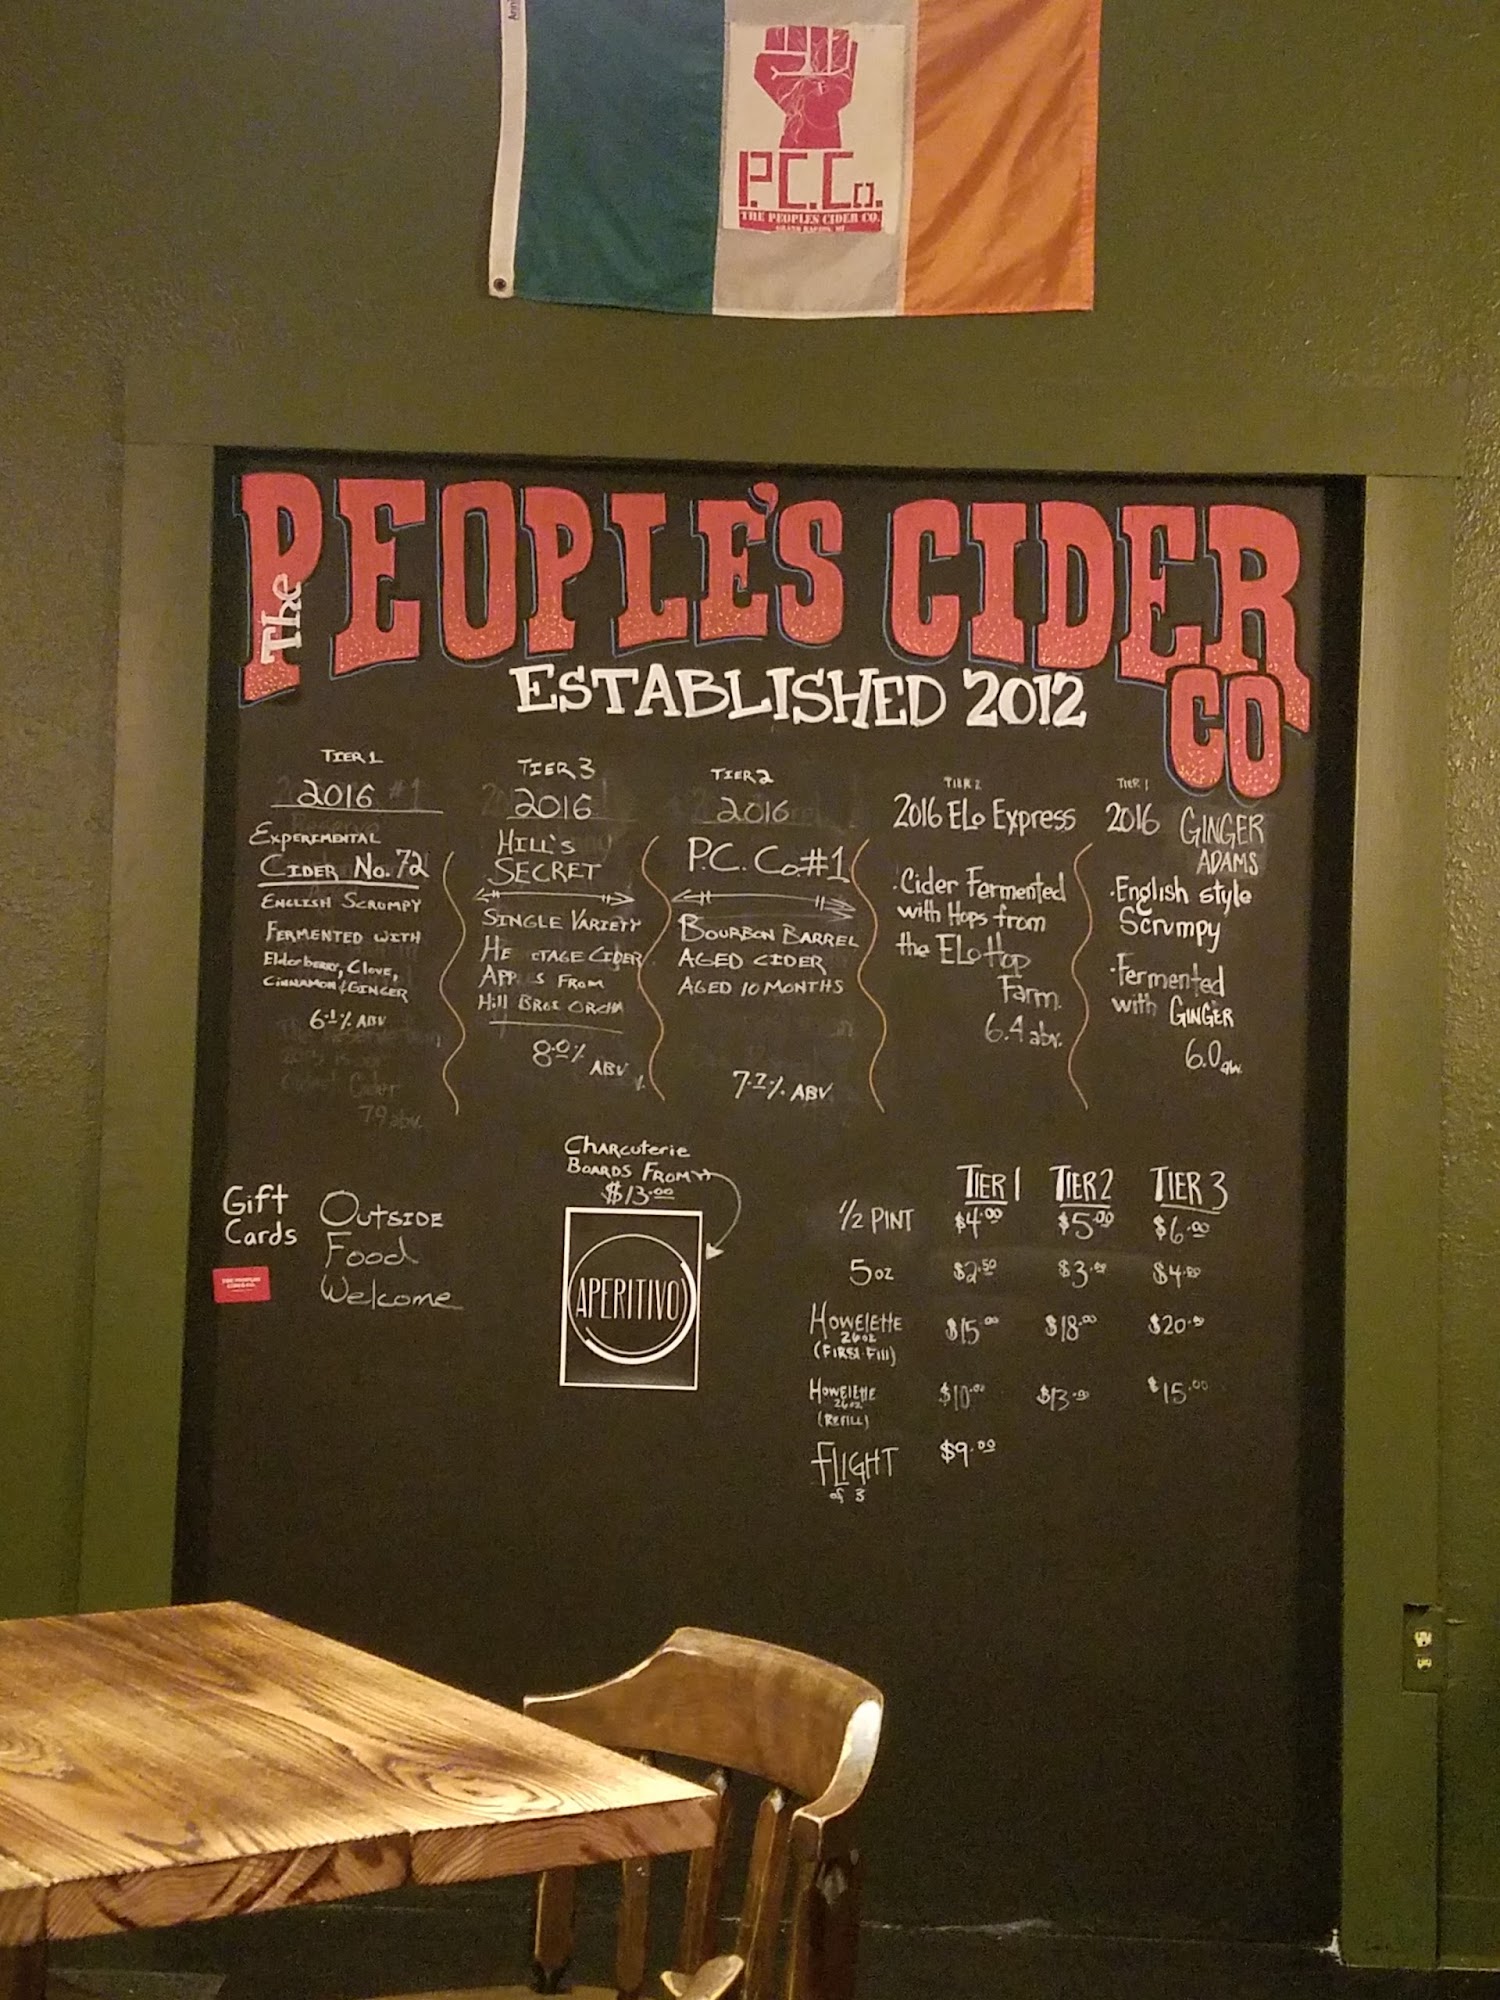 P.C.Co.
THE PEOPLES CIDER CO.
GRAND RAPIDS, MI
The PEOPLE'S CIDER CO
ESTABLISHED 2012
TIER 1
2016 #1
EXPERIMENTAL
CIDER No. 72
ENGLISH SCRUMPY
FERMENTED WITH
Elderberry, Clove,
CINNAMON & GINGER
6.1% ABV
Cider
7.9 abv.
TIER 3
2016
HILL'S
SECRET
SINGLE VARIETY
HE ITAGE CIDER
APPLES FROM
Hill BROS ORCHA
8.0% ABV
TIER 2
2016
P.C. Co.#1
BOURBON BARREL
AGED CIDER
AGED 10 MONTHS
7.7% ABV
TIER 2
2016 ELo Express
·Cider Fermented
with Hops from
the ELo Hop
Farm.
6.4 abv.
TIER 1
2016 GINGER
ADAMS
·English style
Scrumpy
·Fermented
with GINGER
6.0 abv.
Gift
Cards
THE PEOPLES
CIDER CO.
OUTSIDE
Food
Welcome
CHARCUTERIE
BOARDS FROM
$13.00
APERITIVO
TIER 1 TIER 2 TIER 3
1/2 PINT $4.00 $5.00 $6.00
5 oz $2.50 $3.00 $4.00
HOWELETTE $15.00 $18.00 $20.00
26oz
(FIRST FILL)
HOWELETTE $10.00 $13.00 $15.00
26oz
(REFILL)
FLIGHT $9.00
of 3